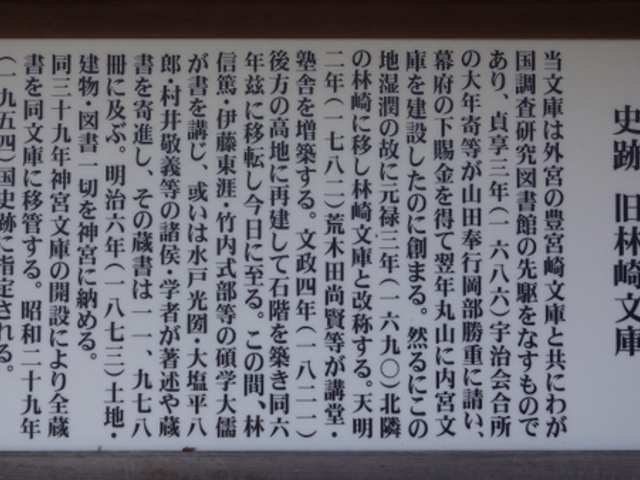 史跡 旧林崎文庫
当文庫は外宮の豊宮崎文庫と共にわが
国調査研究図書館の先駆をなすもので
あり、貞享三年(一六八六)宇治会合所
の大年寄等が山田奉行岡部勝重に請い、
幕府の下賜金を得て翌年丸山に内宮文
庫を建設したのに創まる。然るにこの
地湿潤の故に元禄三年(一六九〇)北隣
の林崎に移し林崎文庫と改称する。天明
二年(一七八二)荒木田尚賢等が講堂・
塾舎を増築する。文政四年(一八二一)
後方の高地に再建して石階を築き同六
年玆に移転し今日に至る。この間、林
信篤・伊藤東涯・竹内式部等の碩学大儒
が書を講じ、或いは水戸光圀・大塩平八
郎・村井敬義等の諸侯・学者が著述や蔵
書を寄進し、その蔵書は一一、九七八
冊に及ぶ。明治六年(一八七三)土地・
建物・図書一切を神宮に納める。
同三十九年神宮文庫の開設により全蔵
書を同文庫に移管する。昭和二十九年
(一九五四)国史跡に指定される。